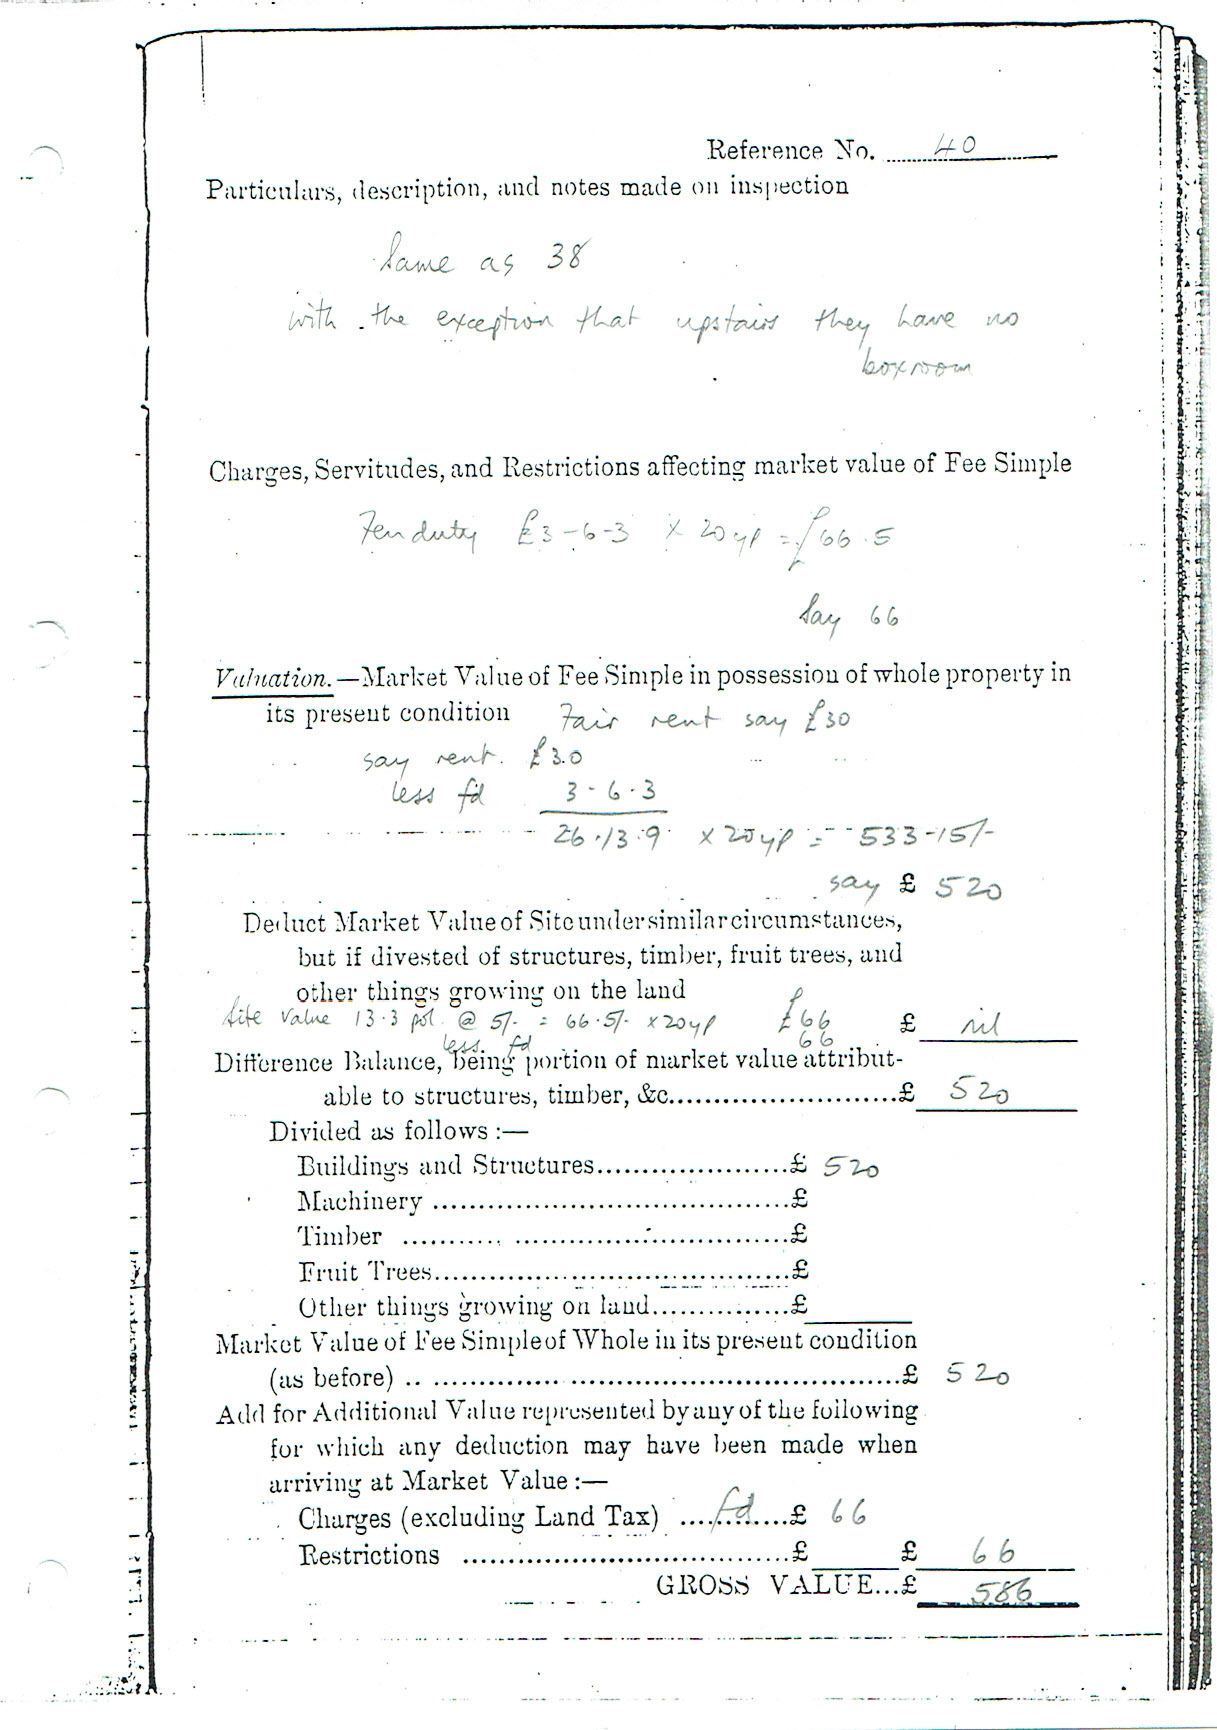 Reference No. 40
Particulars, description, and notes made on inspection
Same as 38
with the exception that upstairs they have no
boxroom
Charges, Servitudes, and Restrictions affecting market value of Fee Simple
Feu duty £3-6-3 x 20 yp = £66.5
Say 66
Valuation.—Market Value of Fee Simple in possession of whole property in
its present condition Fair rent say £30
say rent. £30
less fd 3-6-3
26.13.9 x 20 yp = 533-15/-
say £ 520
Deduct Market Value of Site under similar circumstances,
but if divested of structures, timber, fruit trees, and
other things growing on the land
Site value 13.3 pol @ 5/- = 66.5/- x 20 yp £66 £ nil
less fd 66
Difference Balance, being portion of market value attribut-
able to structures, timber, &c. £ 520
Divided as follows :—
Buildings and Structures £ 520
Machinery £
Timber £
Fruit Trees £
Other things growing on land £
Market Value of Fee Simple of Whole in its present condition
(as before) £ 520
Add for Additional Value represented by any of the following
for which any deduction may have been made when
arriving at Market Value :—
Charges (excluding Land Tax) fd £ 66
Restrictions £ £ 66
GROSS VALUE...£ 586